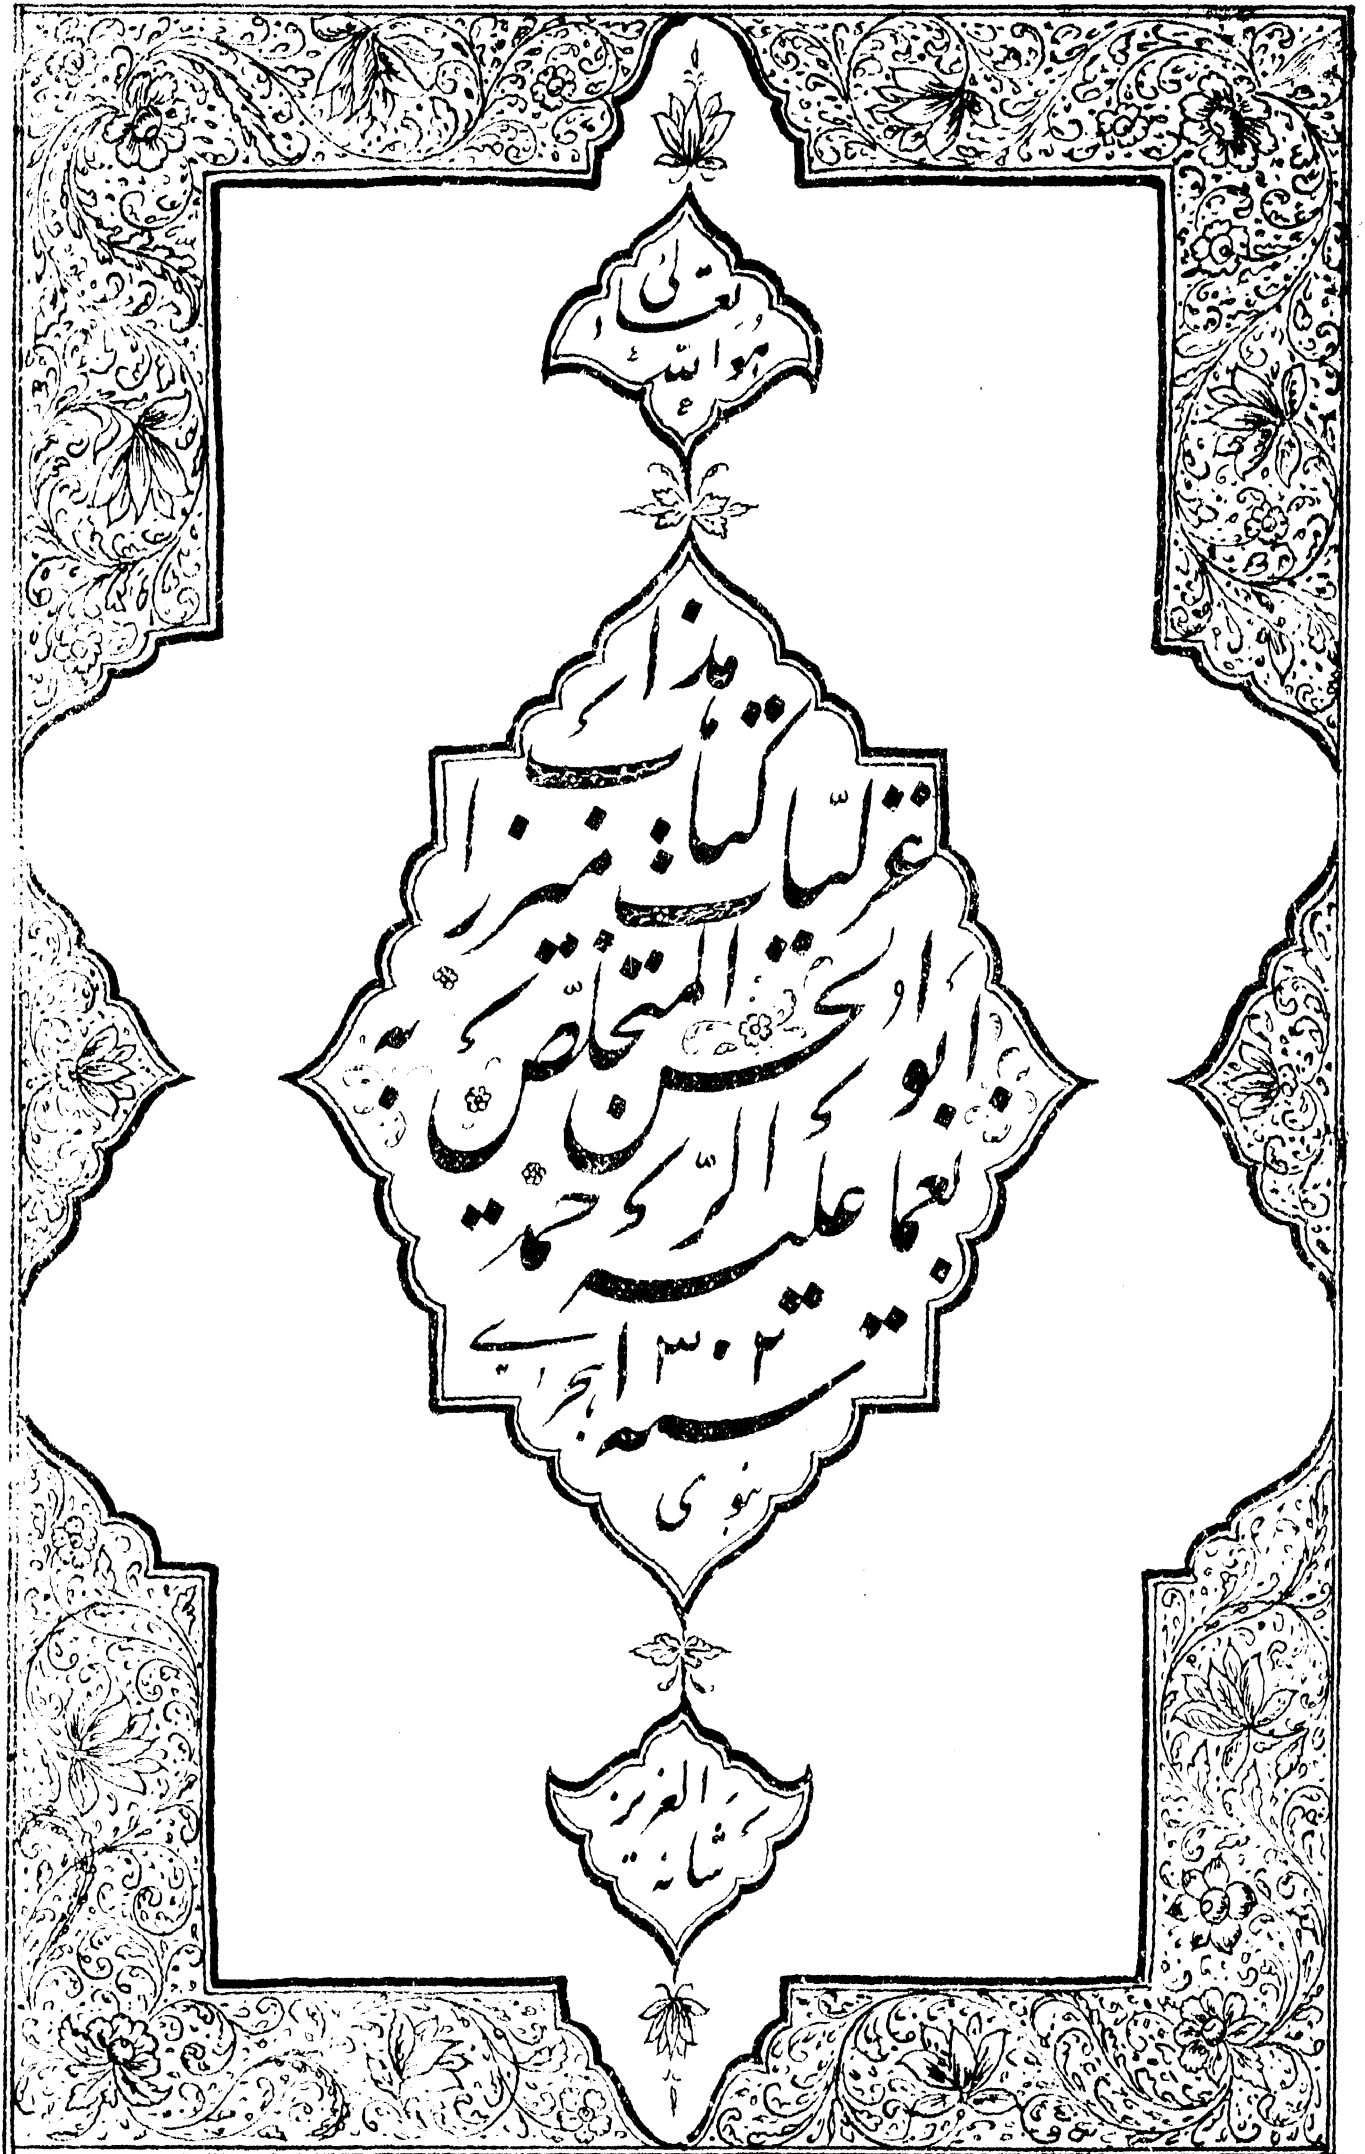 هو الله
تعالی
هذا
کتاب
غزلیّات میرزا
ابوالحسن المتخلّص به
یغما علیه الرّحمة
سنه ۱۳۰۲ هجری
نبوی
شانه
العزیز